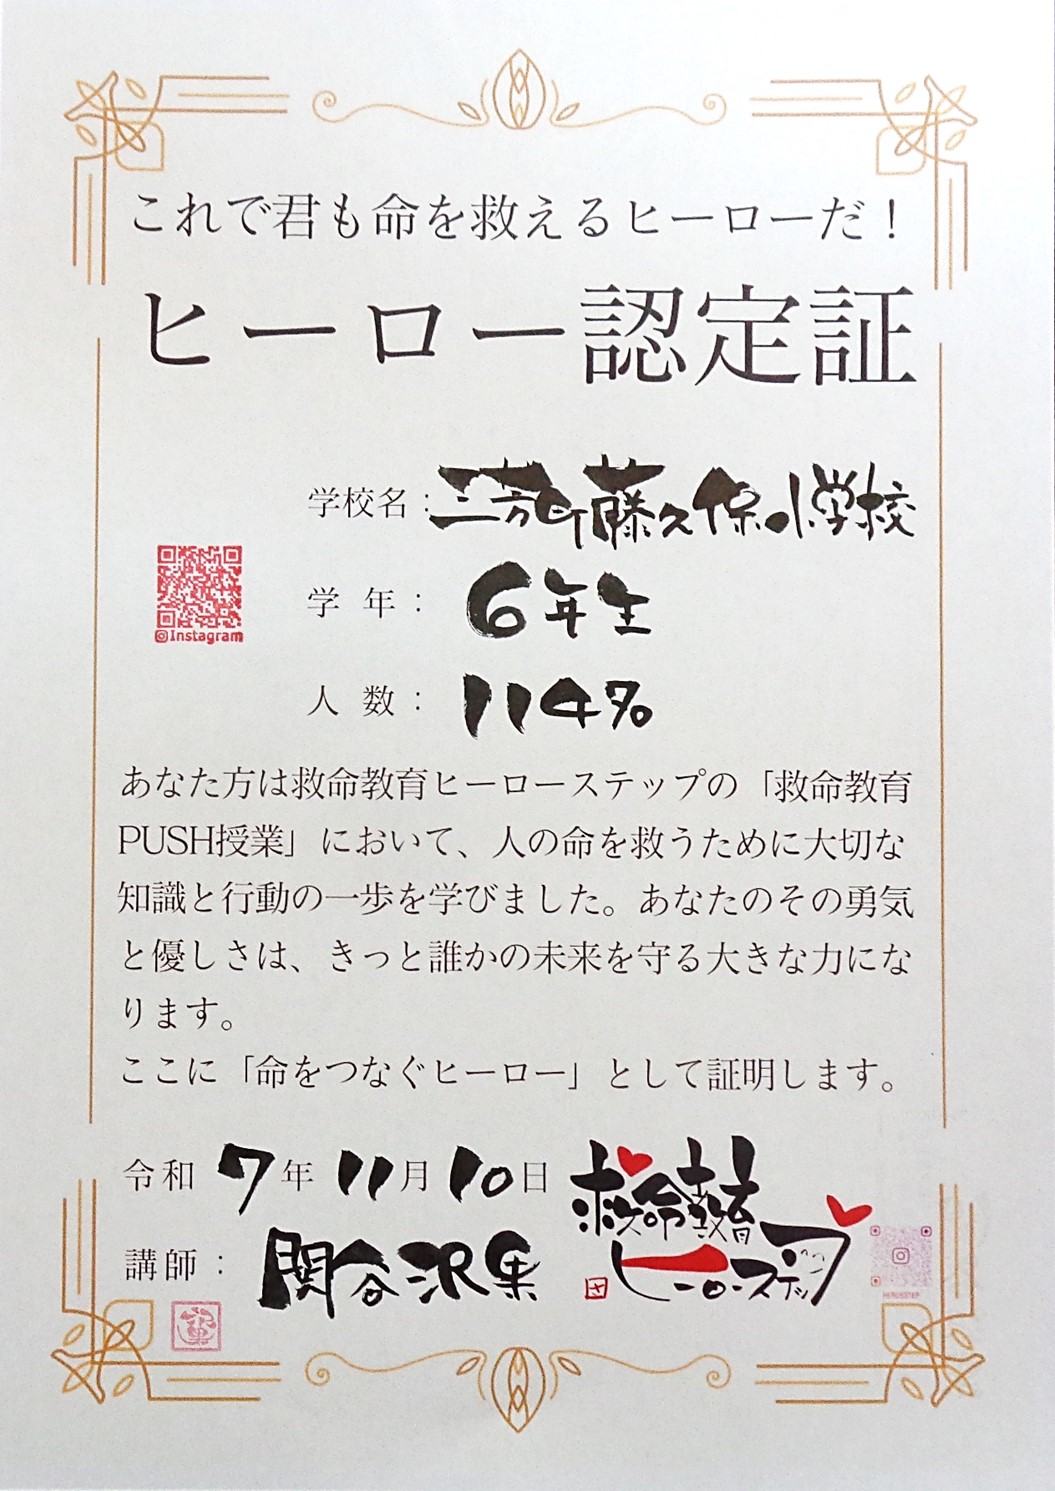 これで君も命を救えるヒーローだ！
ヒーロー認定証
学校名：三芳町藤久保小学校
学年：6年生
人数：114名
Instagram
あなた方は救命教育ヒーローステップの「救命教育
PUSH授業」において、人の命を救うために大切な
知識と行動の一歩を学びました。あなたのその勇気
と優しさは、きっと誰かの未来を守る大きな力にな
ります。
ここに「命をつなぐヒーロー」として証明します。
令和7年11月10日
講師：関谷沢果
救命教育
ヒーローステップ